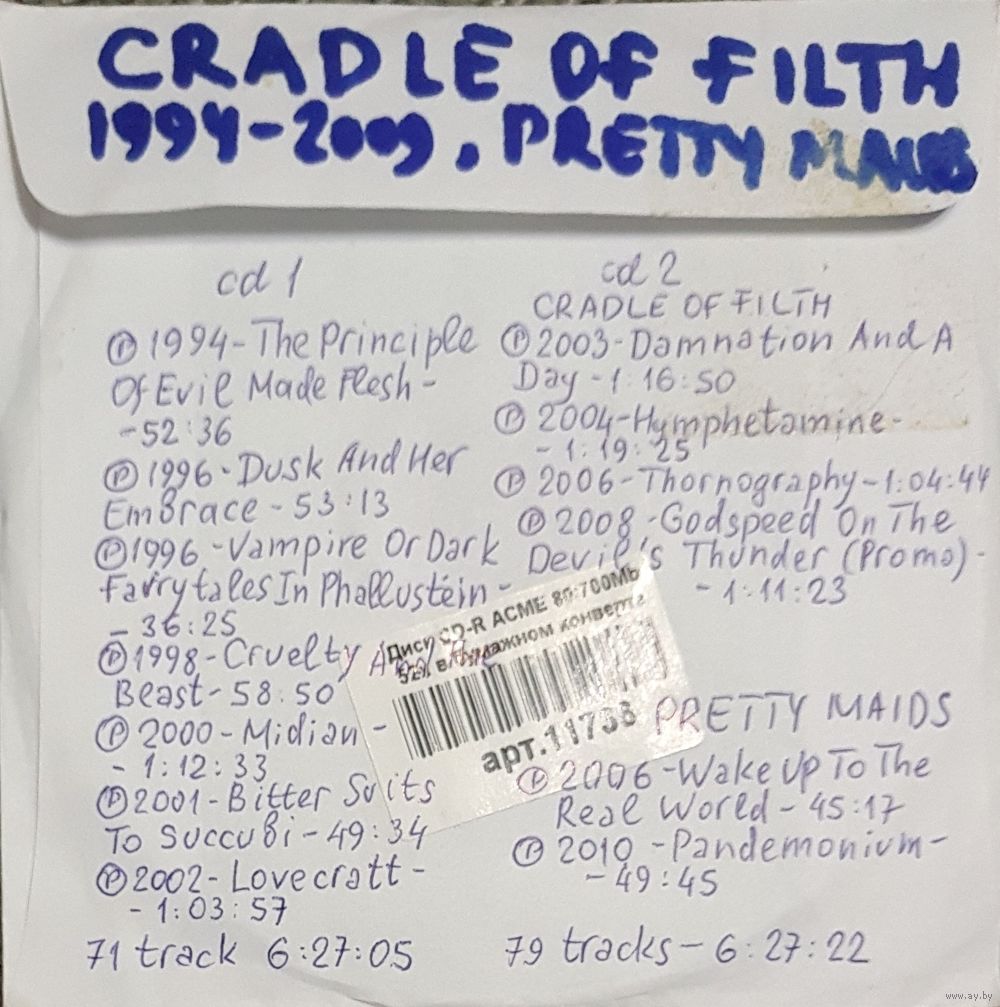 CRADLE OF FILTH
1994-2009, PRETTY MAIDS
cd 1
Ⓟ 1994-The Principle
Of Evil Made Flesh-
-52:36
Ⓟ 1996-Dusk And Her
Embrace-53:13
Ⓟ 1996-Vampire Or Dark
Farrytales In Phallustein-
-36:25
Ⓟ 1998-Cruelty And The
Beast-58:50
Ⓟ 2000-Midian-
-1:12:33
Ⓟ 2001-Bitter Suits
To Succubi-49:34
Ⓟ 2002-Lovecratt-
-1:03:57
71 track 6:27:05
cd 2
CRADLE OF FILTH
Ⓟ 2003-Damnation And A
Day-1:16:50
Ⓟ 2004-Hymphetamine-
-1:19:25
Ⓟ 2006-Thornography-1:04:44
Ⓟ 2008-Godspeed On The
Devil's Thunder (Promo)-
-1:11:23
Диск CD-R ACME 80/700Mb
52x в бумажном конверте
арт.11738
PRETTY MAIDS
Ⓟ 2006-Wake Up To The
Real World-45:17
Ⓟ 2010-Pandemonium-
-49:45
79 tracks-6:27:22
www.ay.by